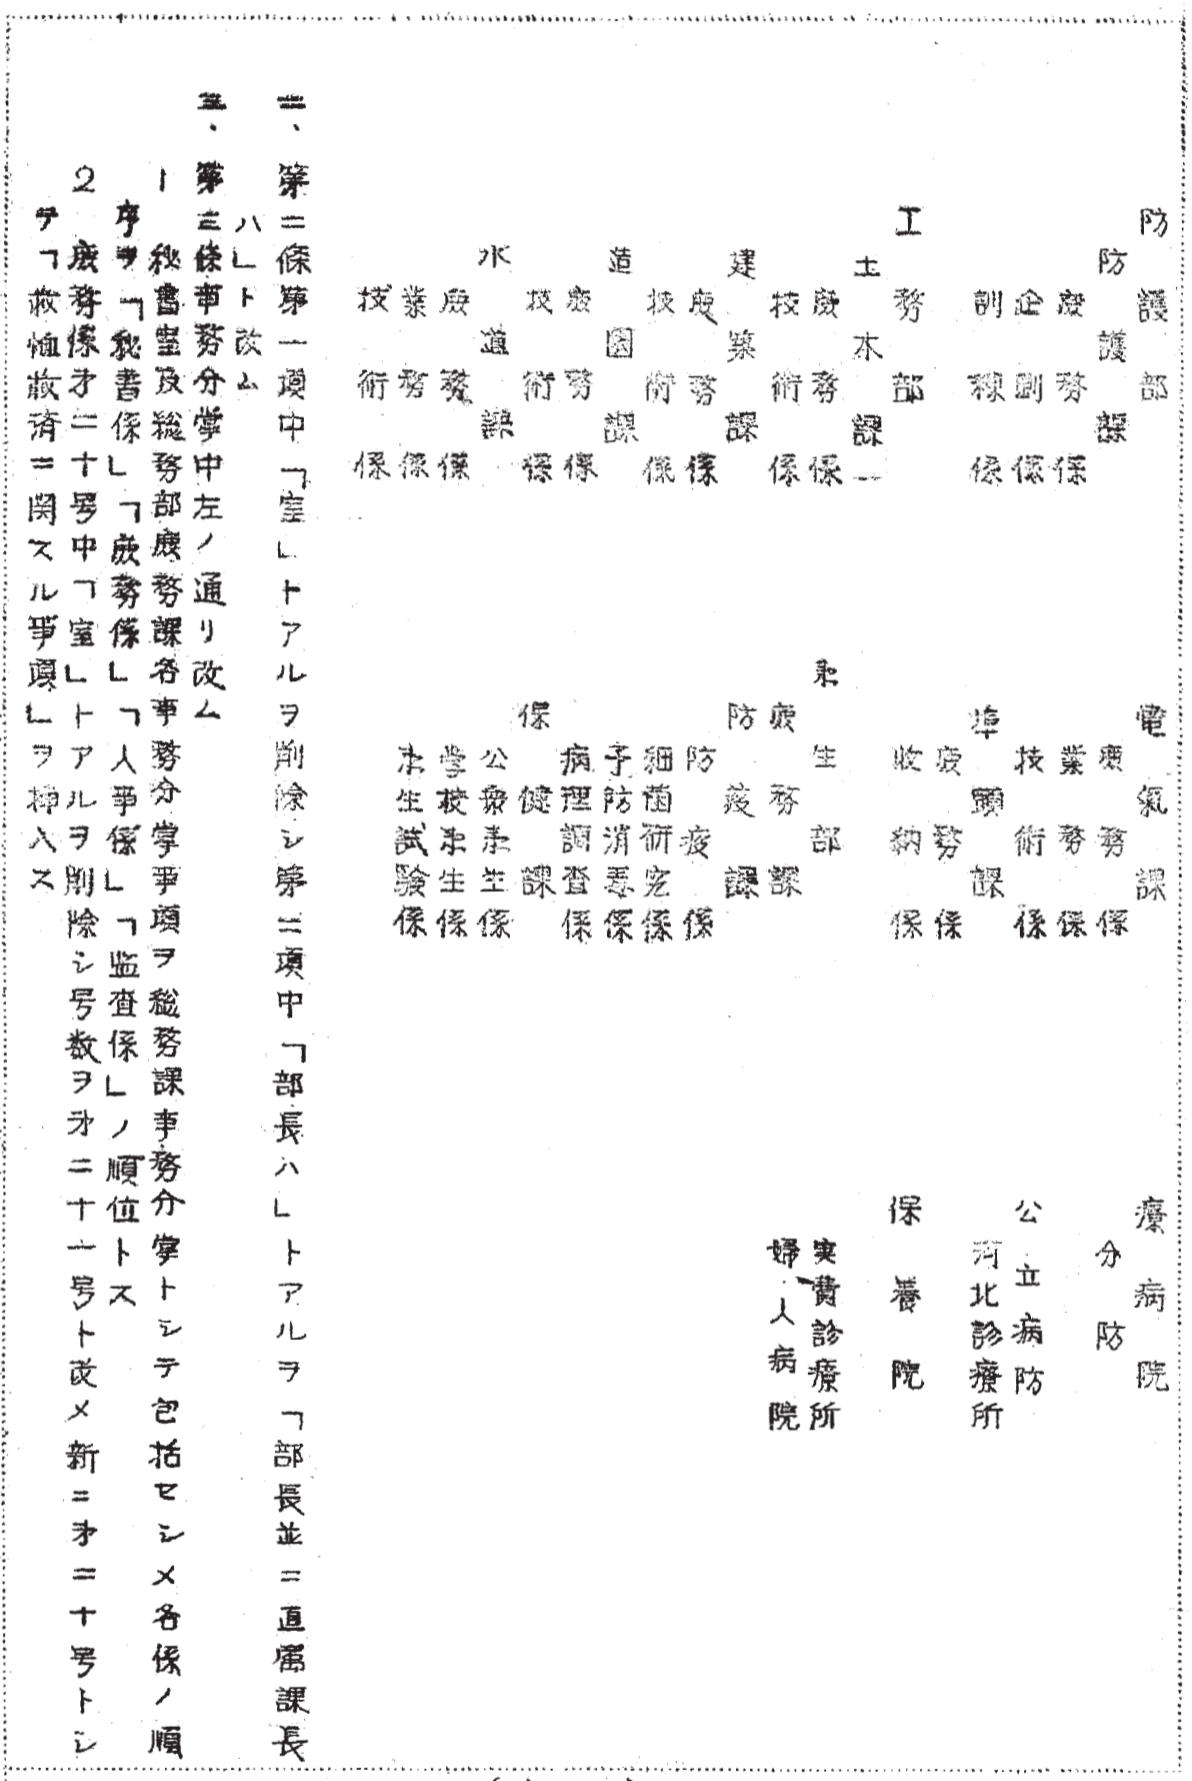 防護部
防護課
庶務係
企劃係
訓練係
工務部
土木課
庶務係
技術係
建築課
庶務係
技術係
造園課
庶務係
技術係
水道課
庶務係
業務係
技術係
電氣課
庶務係
業務係
技術係
埠頭課
庶務係
收納係
衛生部
庶務課
防疫課
防疫係
細菌研究係
予防消毒係
病理調査係
保健課
公衆衛生係
学校衛生係
衛生試験係
療病院
分防
公立病防
河北診療所
保養院
実費診療所
婦人病院
二、第二條第一項中「室」トアルヲ削除シ第二項中「部長ハ」トアルヲ「部長並ニ直属課長
ハ」ト改ム
三、第三條事務分掌中左ノ通リ改ム
1 秘書室及総務部庶務課各事務分掌事項ヲ総務課事務分掌トシテ包括セシメ各係ノ順
序ヲ「秘書係」「庶務係」「人事係」「監査係」ノ順位トス
2 庶務係才二十号中「室」トアルヲ削除シ号数ヲ才二十一号ト改メ新ニ才二十号トシ
テ「救恤救済ニ関スル事項」ヲ挿入ス